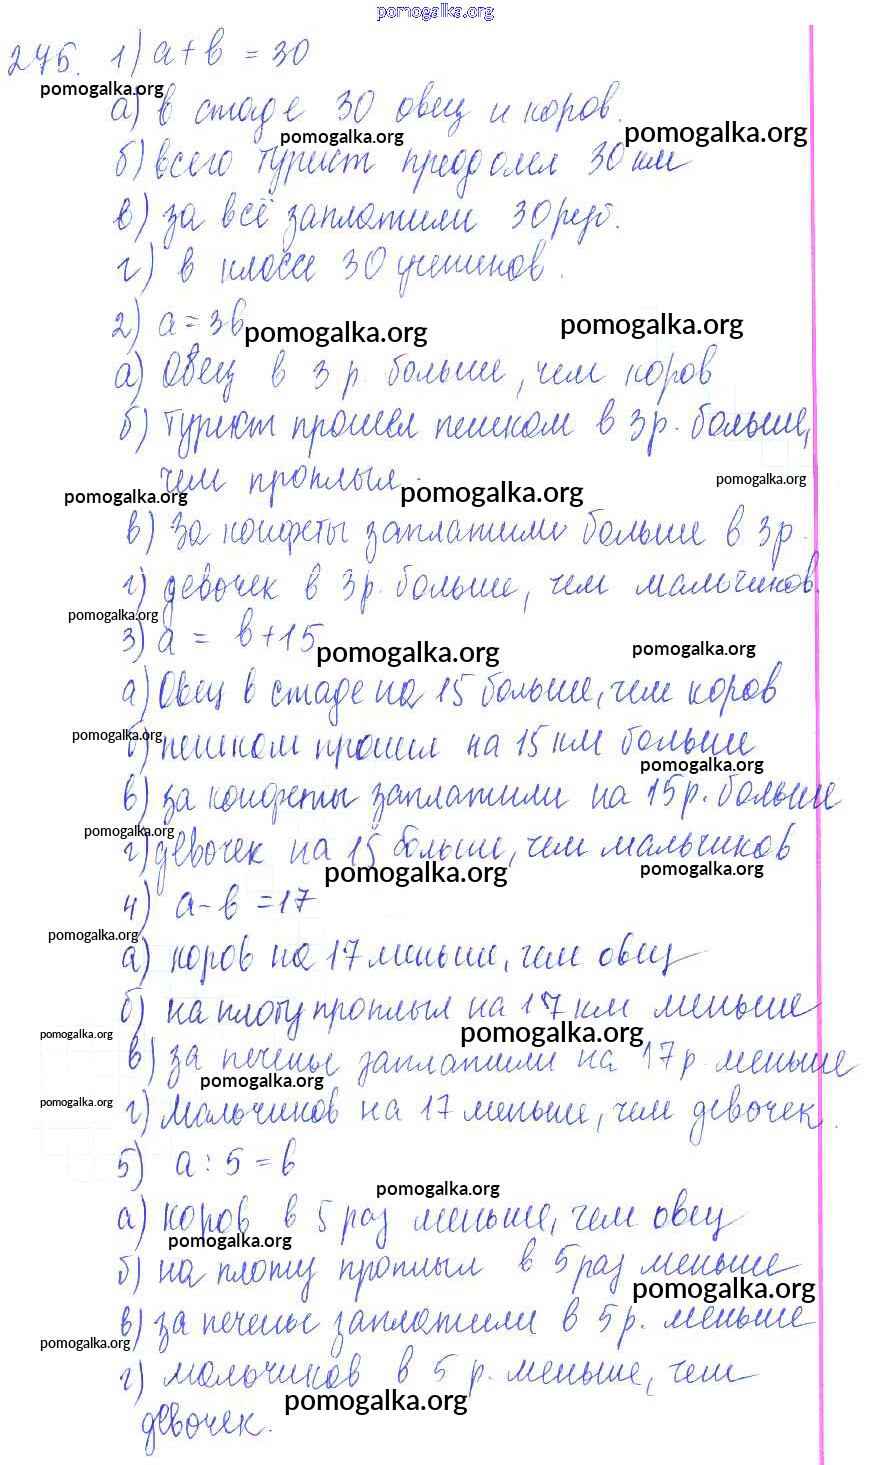 pomogalka.org
275. 1) a + b = 30
pomogalka.org
а) в стаде 30 овец и коров.
pomogalka.org pomogalka.org
б) всего турист преодолел 30 км
в) за всё заплатили 30 руб.
г) в классе 30 учеников.
2) a = 3b
pomogalka.org pomogalka.org
а) Овец в 3 р. больше, чем коров
б) турист прошел пешком в 3 р. больше,
чем проплыл.
pomogalka.org pomogalka.org pomogalka.org
в) за конфеты заплатили больше в 3 р.
г) девочек в 3 р. больше, чем мальчиков.
pomogalka.org
3) a = b + 15
pomogalka.org pomogalka.org
а) Овец в стаде на 15 больше, чем коров
pomogalka.org
б) пешком прошел на 15 км больше
pomogalka.org
в) за конфеты заплатили на 15 р. больше
pomogalka.org
г) девочек на 15 больше, чем мальчиков
pomogalka.org pomogalka.org
4) a - b = 17
pomogalka.org
а) коров на 17 меньше, чем овец
б) на плоту проплыл на 17 км меньше
pomogalka.org pomogalka.org
в) за печенье заплатили на 17 р. меньше
pomogalka.org
pomogalka.org
г) мальчиков на 17 меньше, чем девочек.
5) a : 5 = b
pomogalka.org
а) коров в 5 раз меньше, чем овец
pomogalka.org
б) на плоту проплыл в 5 раз меньше
pomogalka.org
в) за печенье заплатили в 5 р. меньше
pomogalka.org
г) мальчиков в 5 р. меньше, чем
pomogalka.org
девочек.